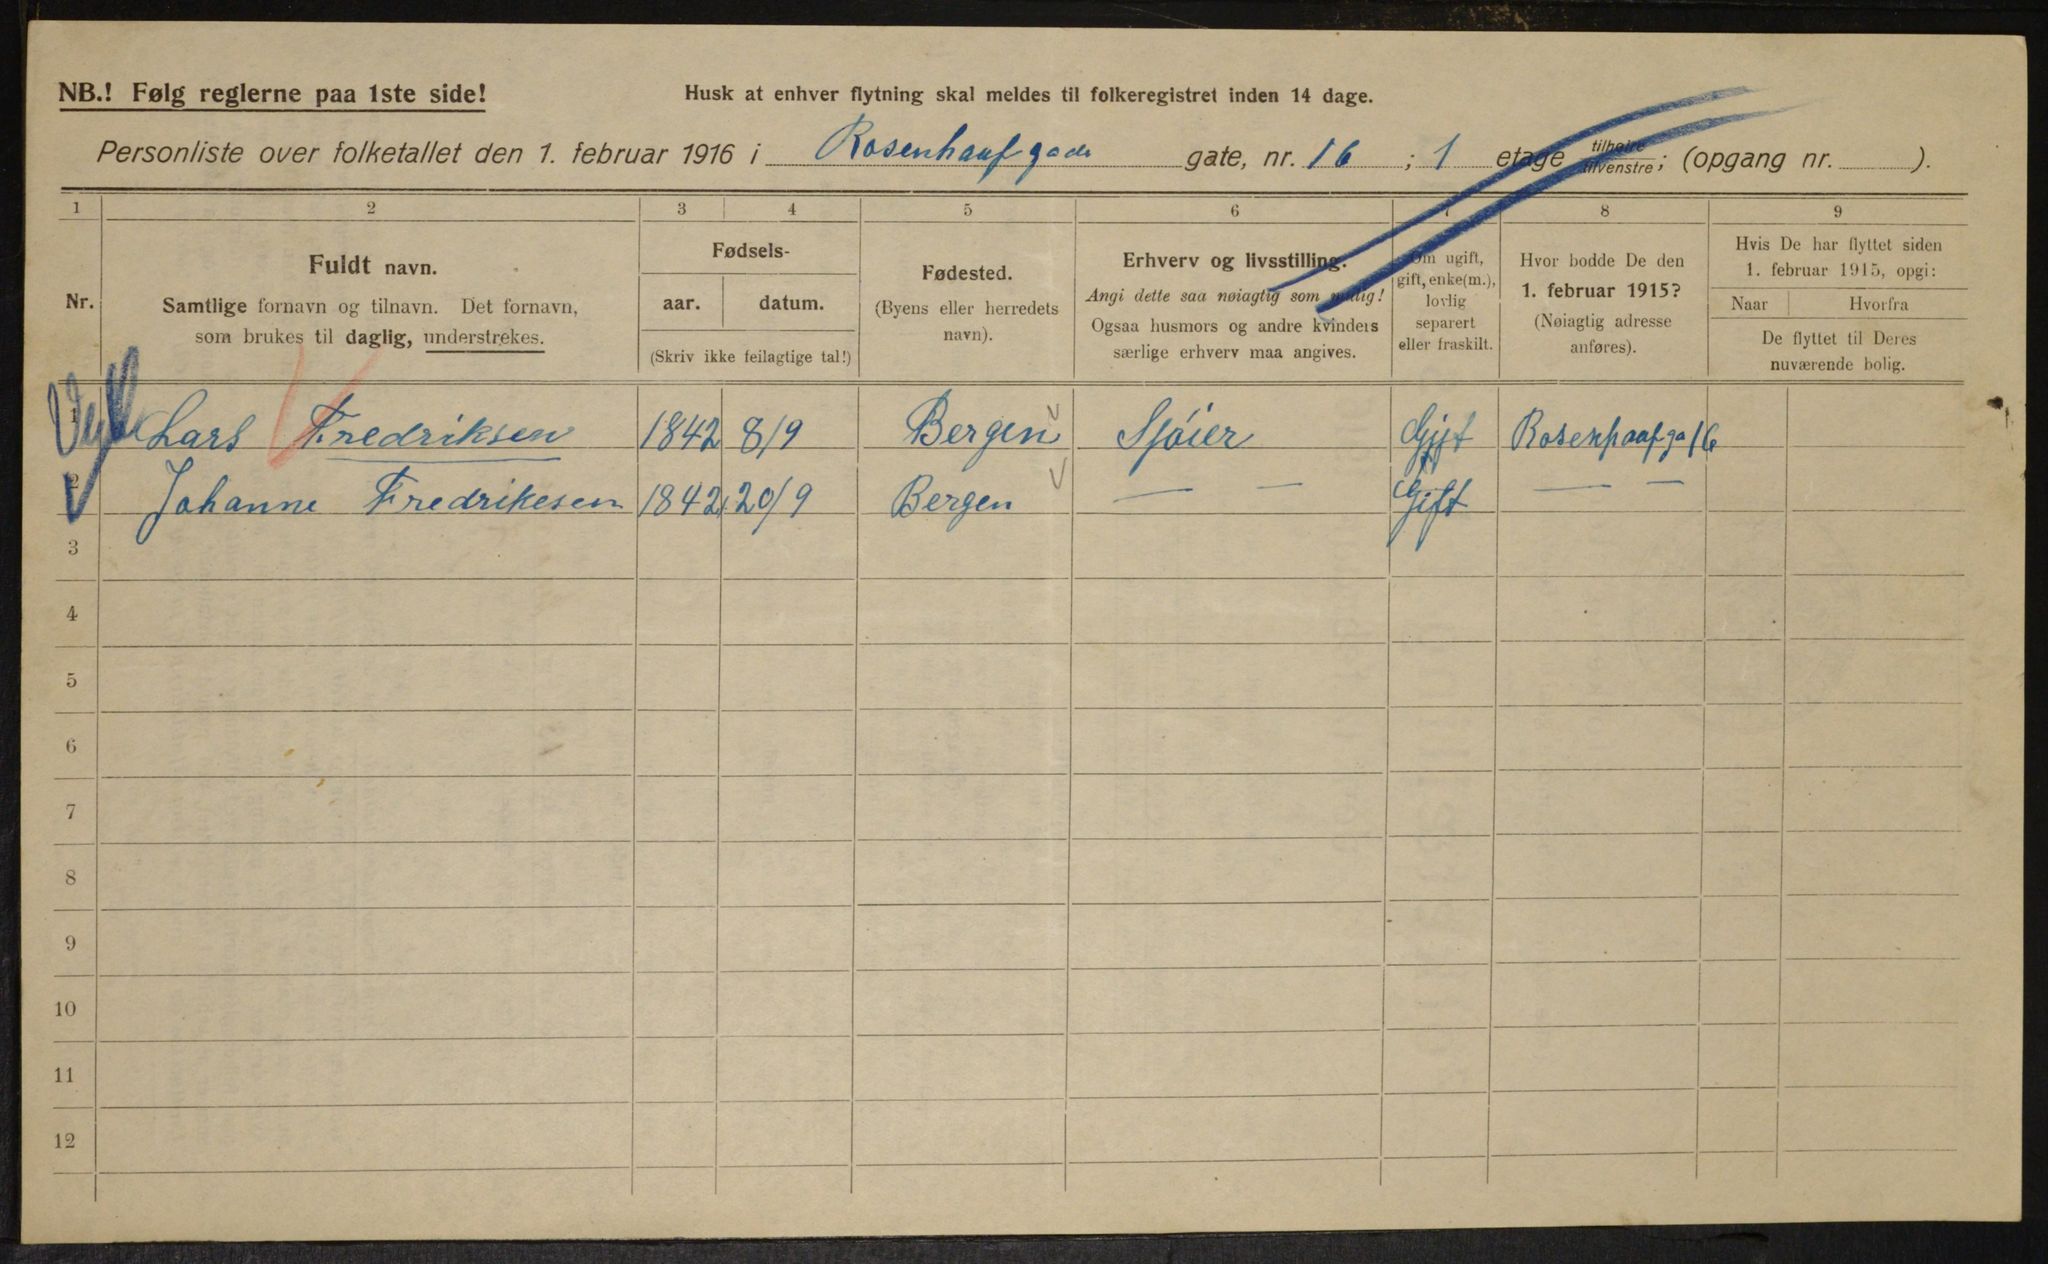 NB.! Følg reglerne paa 1ste side!
Husk at enhver flytning skal meldes til folkeregistret inden 14 dage.
Personliste over folketallet den 1. februar 1916 i Rosenhaafgade gate, nr. 16 ; 1 etage tilhøire tilvenstre; (opgang nr. ).
1 2 3 4 5 6 7 8 9
Nr.
Fuldt navn.
Samtlige fornavn og tilnavn. Det fornavn,
som brukes til daglig, understrekes.
Fødsels-
aar. datum.
(Skriv ikke feilagtige tal!)
Fødested.
(Byens eller herredets
navn).
Erhverv og livsstilling.
Angi dette saa nøiagtig som mulig!
Ogsaa husmors og andre kvinders
særlige erhverv maa angives.
Om ugift,
gift, enke(m.),
lovlig
separert
eller fraskilt.
Hvor bodde De den
1. februar 1915?
(Nøiagtig adresse
anføres).
Hvis De har flyttet siden
1. februar 1915, opgi:
Naar Hvorfra
De flyttet til Deres
nuværende bolig.
1 Lars Fredriksen 1842 8/9 Bergen Sjøier Gift Rosenhaafga 16
2 Johanne Fredriksen 1842 20/9 Bergen — — Gift — —
3
4
5
6
7
8
9
10
11
12